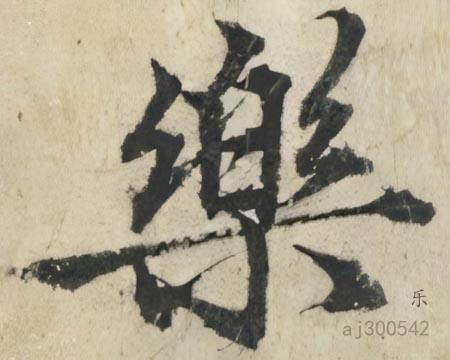 樂
乐
aj300542